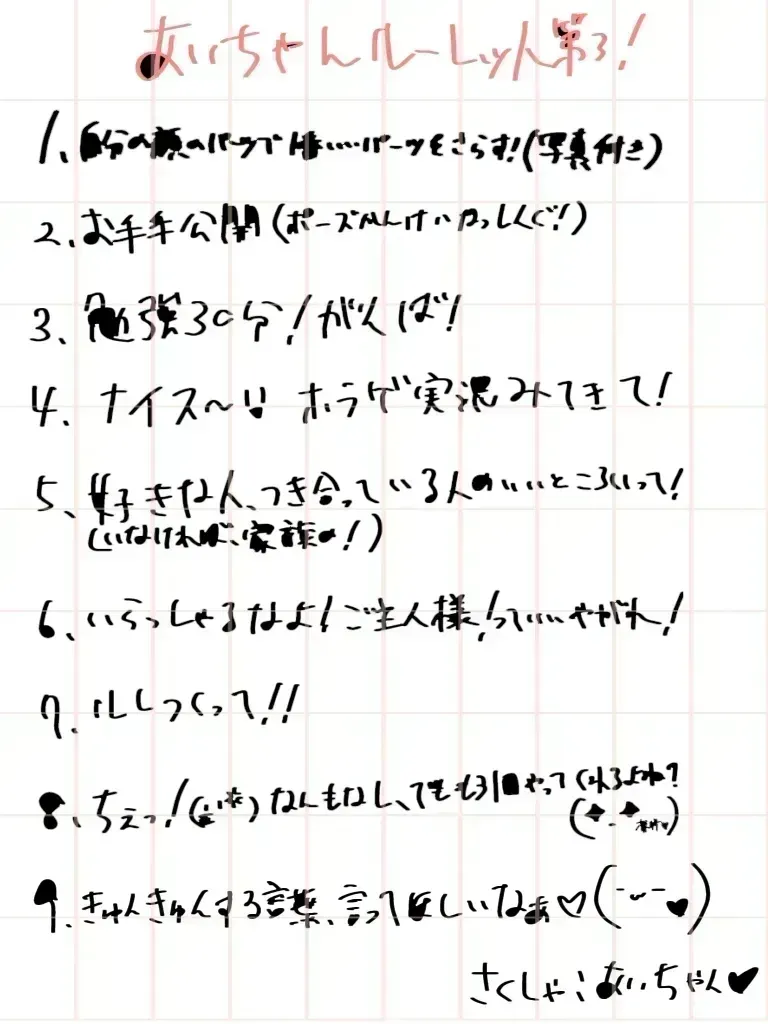 あいちゃんルーレット第3!
1、自分の顔のパーツで1番いいパーツをさらす!(写真付き)
2、お手手公開(ポーズかんけいなっしんぐ!)
3、勉強30分!がんば!
4、ナイス〜!!ホラゲ実況みてきて!
5、好きな人、つき合っている人のいいところいって!
(いなければ、家族の!)
6、いらっしゃるなよ!ご主人様!っていいやがれ!
7、ルしつくって!!
8、ちぇっ!なんもなし、でももう1回やってくれるよね?
9、きゅんきゅんする言葉、言ってほしいなぁ♡(˘⌣˘♥)
さくしゃ:あいちゃん♥